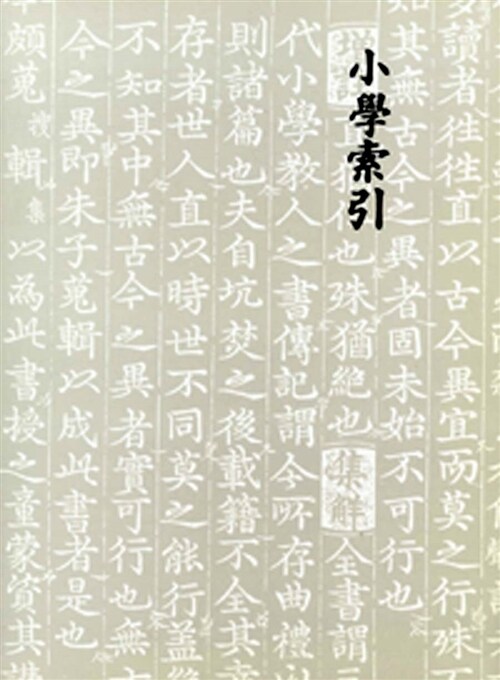 小學索引
多讀者往往直以古今異宜而莫之行殊不
如其無古今之異者固未始不可行也
增註
也殊猶絶也集解全書謂
代小學教人之書傳記謂今所存曲禮
則諸篇也夫自坑焚之後載籍不全其幸
存者世人直以時世不同莫之能行蓋
不知其中無古今之異者實可行也無古
今之異即朱子蒐輯以成此書者是也
頗蒐搜輯集以為此書授之童蒙資其講